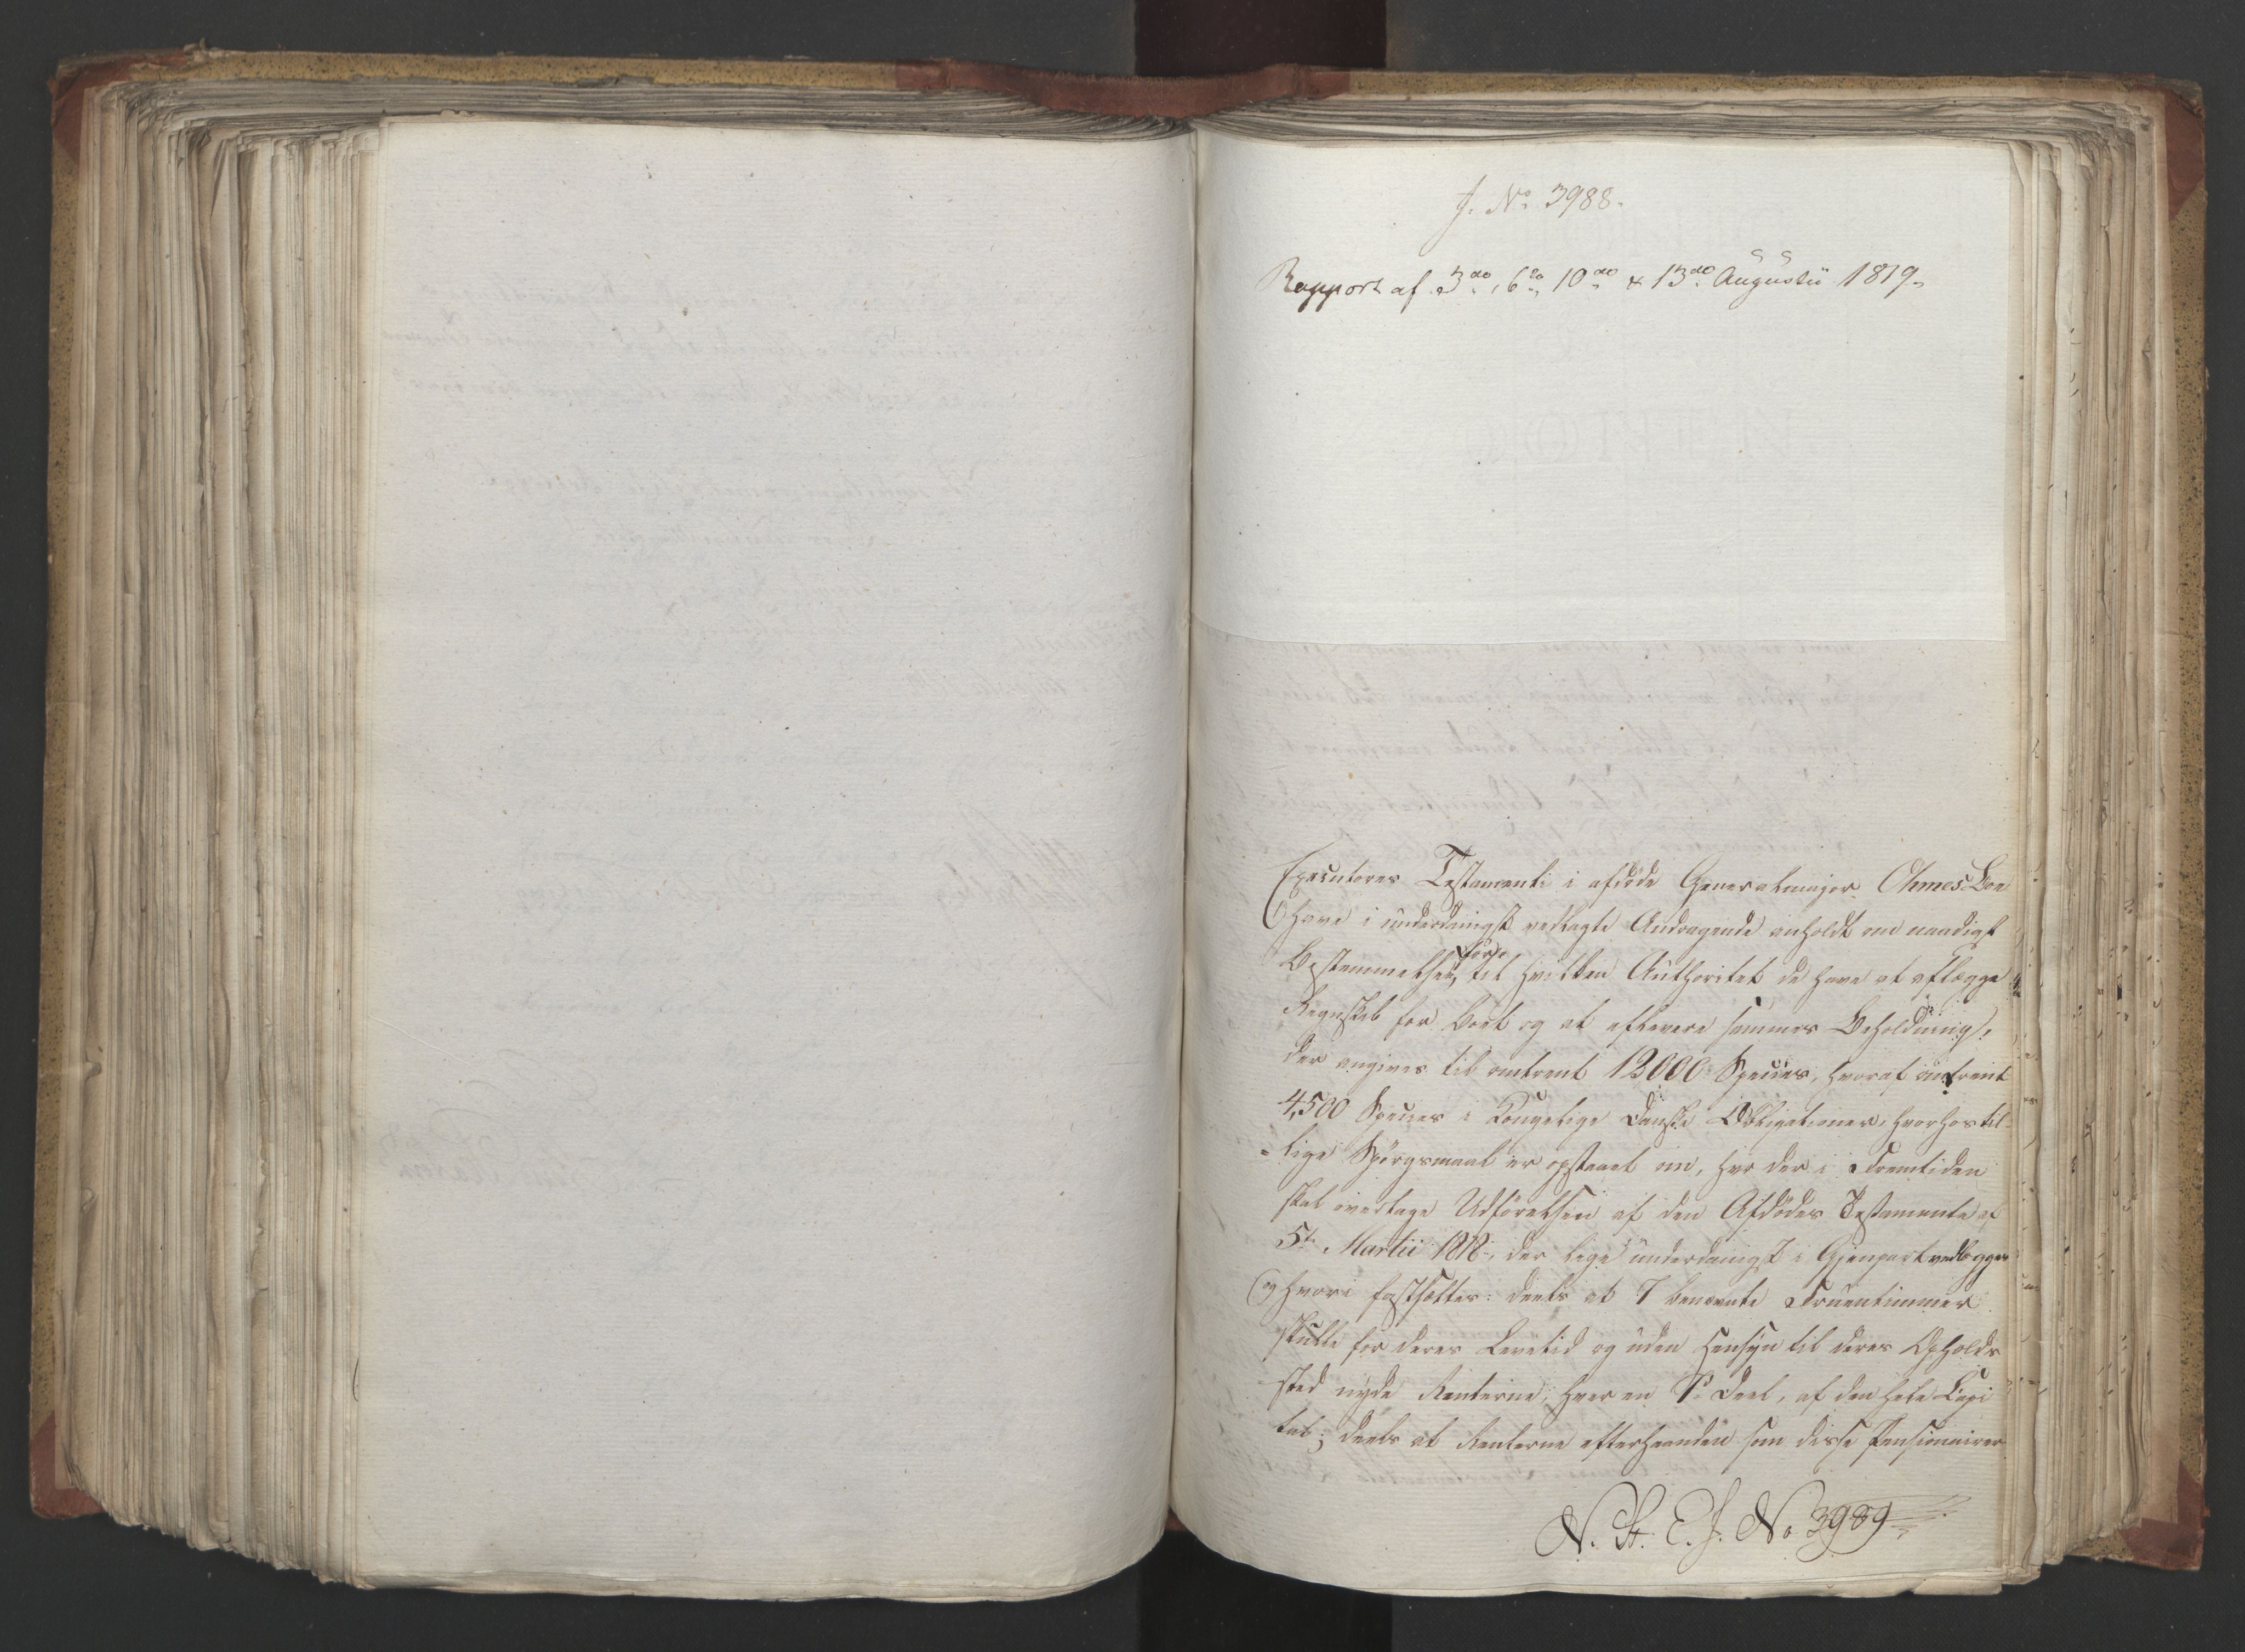 J. No 3988.
Rapport af 3die, 6te, 10de & 13de Augustii 1819.
Executores Testamenti i afdøde Generalmajor Ohmes Boe
have i underdanigst vedlagte Andragende anholdt om naadigst
Bestemmelse for, til hvilken Authoritet de have at aflægge
Regnskab for Boet og at aflevere sammes Beholdning,
der angives til omtrent 12000 Species, hvoraf omtrent
4,500 Species i Kongelige Danske Obligationer, hvorhos til-
-lige Spørgsmaal er opstaaet om, hvo der i Fremtiden
skal overtage Udførelsen af den Afdødes Testamente af
5te Martii 1818, der lige underdanigst i Gjenpart vedlægges
og hvori fastsættes: deels at 7 benævnte Fruentimmer
skulle for deres Levetid og uden Hensyn til deres Opholds
sted nyde Renterne, hver en Deel, af den hele Capi
tal; deels at Renterne efterhaanden som disse Pensionairer
N. St. E. J. No 3989